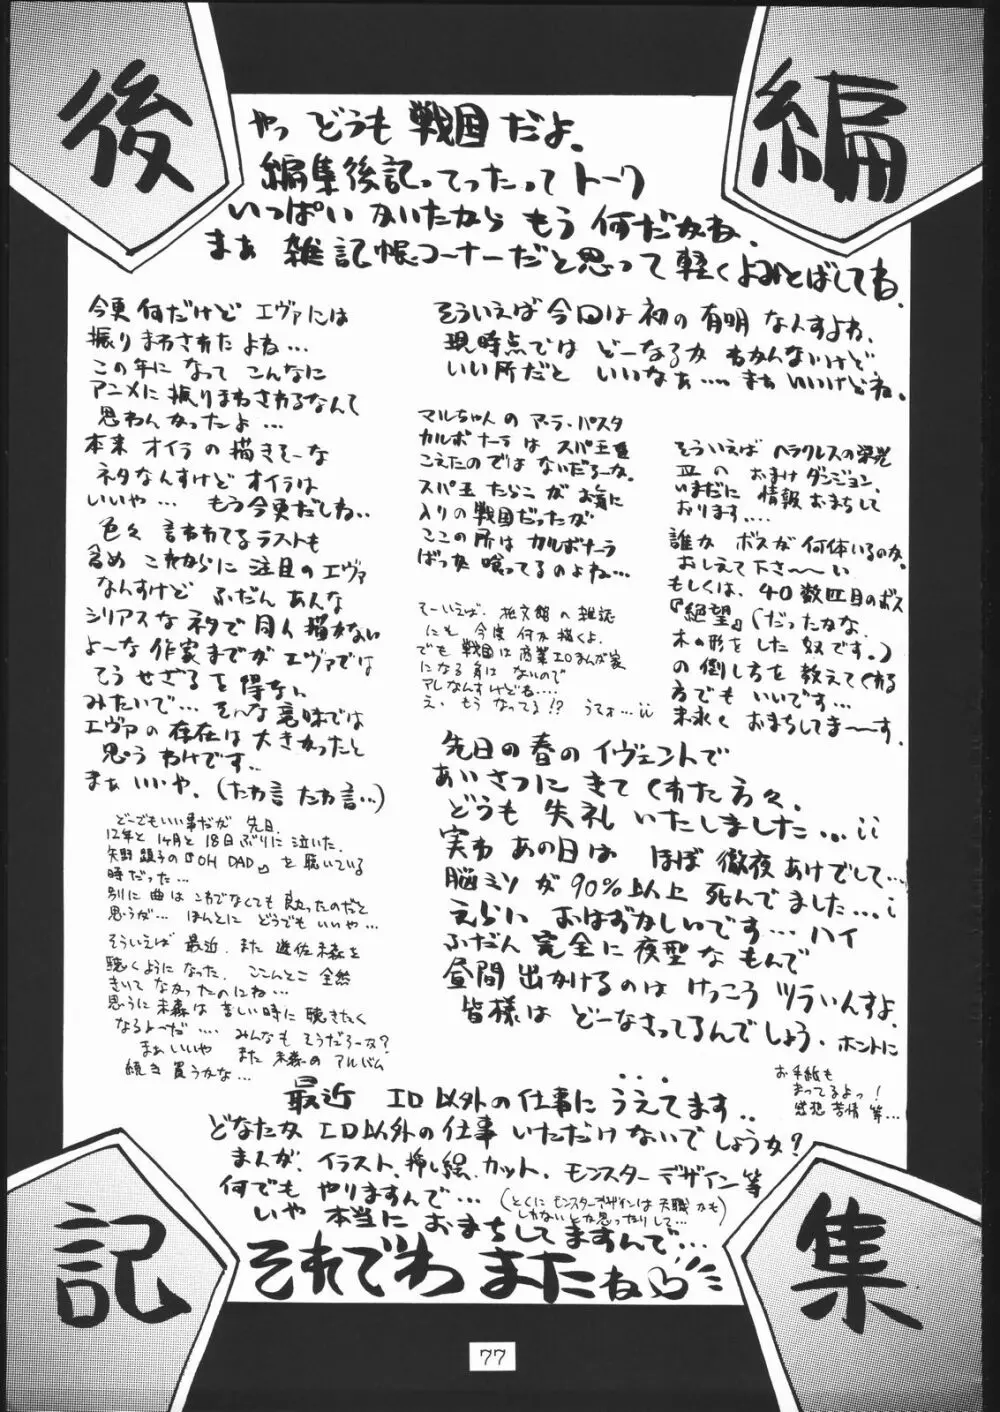 編
集
後
記
やっ どうも 戦国 だよ。
編集後記ってったって トーク
いっぱい かいたから もう 何だかね、
まぁ 雑記帳コーナーだと思って 軽く よみとばしてね。
今更 何だけど エヴァには
振りまわされた よね…
この年に なって こんなに
アニメに 振りまわされるなんて
思わんかったよ…
本来 オイラ の 描きそーな
ネタなんすけど オイラは
いいや… もう今更だしね..
色々 言われてるラストも
含め これからに 注目の エヴァ
なんすけど ふだん あんな
シリアスな ネタで 同人 描かない
よーな 作家 までが エヴァでは
そう せざる を 得ない
みたいで… そんな 意味では
エヴァ の 存在 は 大きかったと
思う わけです..
まぁ いいや、(たわ言 たわ言…)
どーでもいい事だが 先日、
12年と 1ヶ月と 18日ぶりに 泣いた。
矢野顕子の『OH DAD』を 聴いている
時だった…
別に 曲は これでなくても 良かったのだと
思うが… ほんとに どうでも いいや…
そういえば 最近、また 遊佐未森を
聴くようになった。 ここんとこ 全然
きいて なかったのにね…
思うに 未森は 苦しい時に 聴きたく
なるよーだ…. みんなも そうだろーか?
まぁ いいや また 未森の アルバム
続き 買うかな…
そういえば 今回は 初の 有明 なんすよね、
現時点では どーなるか わかんないけど
いい所だと いいなぁ…. まぁ いいけどね。
マルちゃん の アーラ・パスタ
カルボナーラ は スパ王を
こえたの では ないだろーか。
スパ王 たらこ が お気に
入りの 戦国だったが
ここの所は カルボナーラ
ばっか 喰ってるのよね…
そーいえば、桃文館 の 雑誌
にも 今度 何か 描くよ。
でも 戦国は 商業エロまんが家
になる 身は ないので
アレなんすけどね…
え、もう なってる!? うそぉ…ii
そういえば ヘラクレスの栄光
IIIの おまけ ダンジョン、
いまだに 情報 おまちして
おります….
誰か ボスが 何体いるのか
おしえて 下さ〜〜い
もしくは、40数匹目のボス
『絶望』(だったかな、
木の形を した 奴です。)
の 倒し方 を 教えてくれる
方でも いいです…
末永く おまちしてま〜〜す。
先日の 春の イヴェントで
あいさつに きて くれた 方々、
どうも 失礼 いたしました…ii
実わ あの日は ほぼ 徹夜 あけでして…
脳ミソ が 90%以上 死んでました…i
えらい おはずかしいです… ハイ
ふだん 完全に 夜型 な もんで
昼間 出かけるのは けっこう ツラいんすよ。
皆様は どーなさってるんでしょう、ホントに
お手紙も
まってるよっ!
感想 苦情 等…
最近 エロ以外の仕事に うえてます..
どなたか エロ以外の仕事 いただけないでしょうか?
まんが、イラスト、挿し絵、カット、モンスターデザイン等
何でも やりますんで…
(とくに モンスターデザインは 天職 かも
しれない とか思ったりして…)
いや 本当に おまちしてますんで…
それでわ またねっ
77